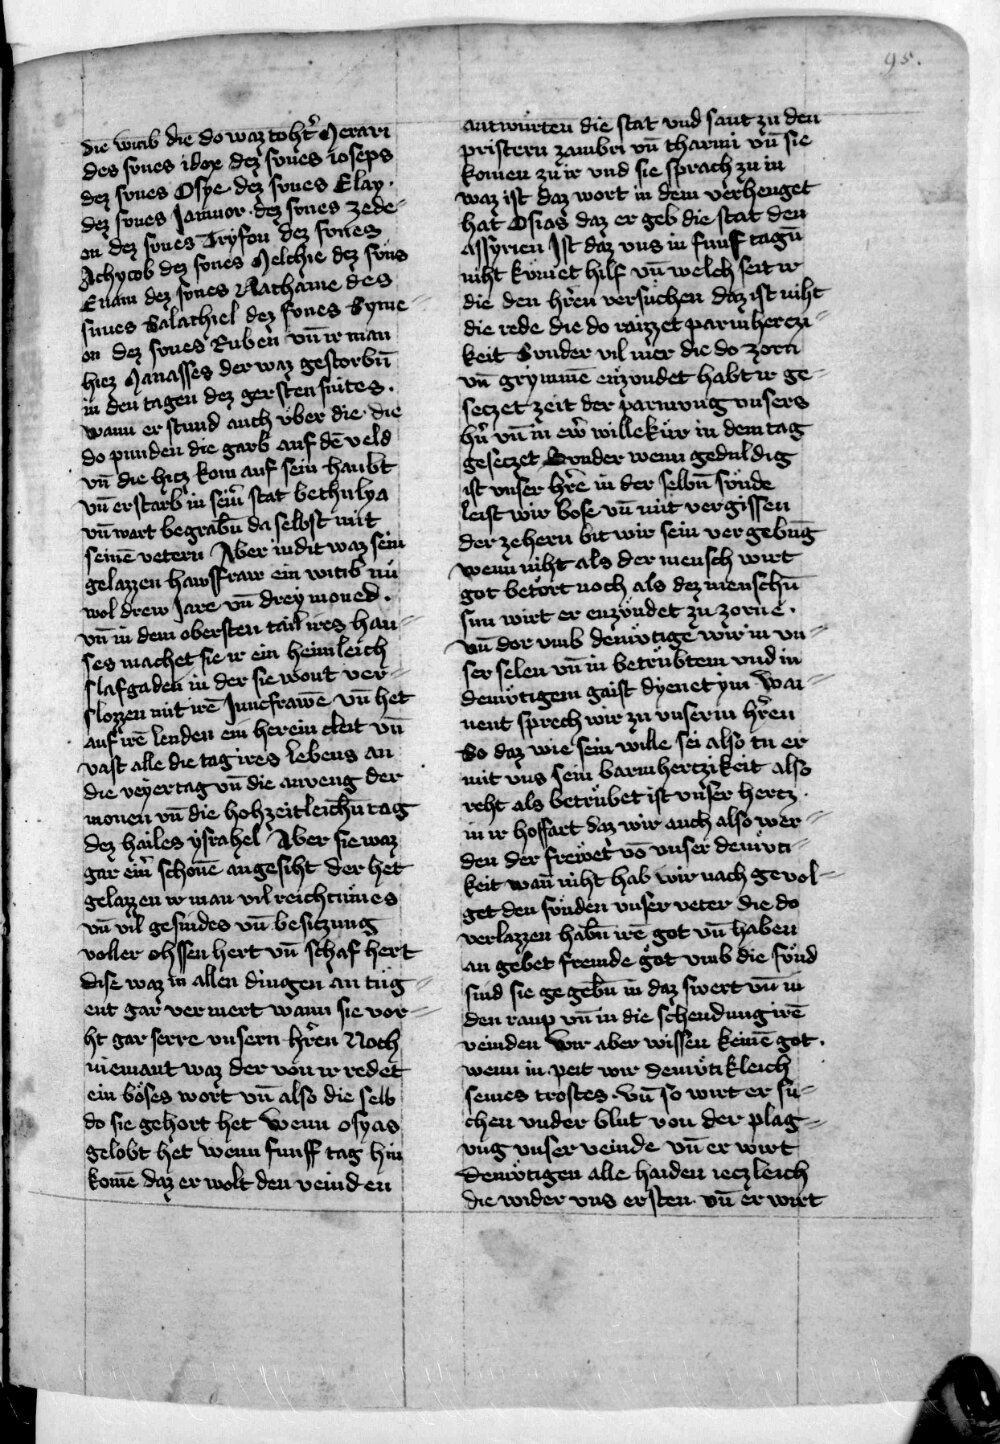 95.
die witib die do waz toht̄ Merari
des sones idox dez sones ioseps
dez sones Osye. dez sones Elay.
dez sones Jamnor. dez sones Zede=
on dez sones Tryfon dez sones
Achytob dez sones Melchie dez sons
Enam dez sones Nathanie des
sunes Salathiel dez sones Syme=
on dez sones Ruben vn̄ ir man
hiez Manasses der waz gestorbn̄
in den tagen dez gersten snites.
wann er stund auch vͤber die die
do punden die garb auf dē veld
vn̄ die hitz kom auf sein haubt
vn̄ erstarb in sein̄ stat bethulya
vn̄ wart begrabn̄ da selbst mit
seinē vetern Aber iudit waz sein
gelazzen hawsfraw ein witib nu
wol drew Jare vn̄ drey moned.
vn̄ in dem obersten tail ires hau=
ses machet sie ir ein heimleich
slafgaden in der sie wont ver=
slozzen mit irē Juncfrawē vn̄ het
auf irē lenden ein herein cleit vn̄
vast alle die tag ires lebens an
die veyertag vn̄ die anweng der
monen vn̄ die hohzeitleichn̄ tag
dez hailes ysrahel Aber sie waz
gar ein̄ schonē angesiht der het
gelazzen ir man vil reichtumes
vn̄ vil gesindes vn̄ besitzung
voller ohssen hert vn̄ schaf hert
dise waz in allen dingen an tug=
ent gar vermert wann sie vor=
ht gar serre vnsern hr̄en Noch
niemant waz der von ir redet
ein boͤses wort vn̄ also die selb
do sie gehort het Wenn osyas
gelobt het wenn funff tag hin
komē daz er wolt den veinden
antwurten die stat vnd sant zu den
pristern zambri vn̄ tharmi vn̄ sie
komen zu ir vnd sie sprach zu in
waz ist daz wort in dem verhenget
hat Osias daz er geb die stat den
assyrien Ist daz vns in funf tagn̄
niht koͤmet hilf vn̄ welch seit ir
die den hr̄en versuͤchen daz ist niht
die rede die do raizzet parmherczi=
keit Sunder vil mer die do zorn
vn̄ grymmē enzvndet habt ir ge=
seczet zeit der parmvng vnsers
hr̄n vn̄ in ewr̄ willekuͤr in dem tag
geseczet Sonder wenn geduldig
ist vnser hr̄e in der selbn̄ svnde
leist wir bose vn̄ mit vergissen
der zehern bit wir sein vergebung
wenn niht als der mensch wirt
got betoͤrt noch als dez menschn̄
sun wirt er enzvndet zu zorne.
vn̄ dor vmb demvͤtige wir im vn=
ser selen vn̄ in betruͤbtem vnd in
demvͤtigem gaist dyenet ym Wai=
nent sprech wir zu vnserm hr̄en
So daz wie sein wille sei also tu er
mit vns sein barmhertzikeit also
reht als betruͤbet ist vnser hertz.
in ir hoffart daz wir auch also wer=
den der frewet vō vnser demvͤti=
keit wan̄ niht hab wir nach gevol=
get den svnden vnser veter die do
verlazzen habn̄ irē got vn̄ haben
an gebet fremde got vmb die svnd
sind sie gegebn̄ in daz swert vn̄ in
den raup vn̄ in die schendung irē
veinden Wir aber wissen keinē got.
wenn in peit wir demvͤtikleich
seines trostes. Vn̄ so wirt er su=
chen vnder blut von der plag=
vng vnser veinde vn̄ er wirt
demvͤtigen alle haiden ieczleich
die wider vns ersten. vn̄ er wirt